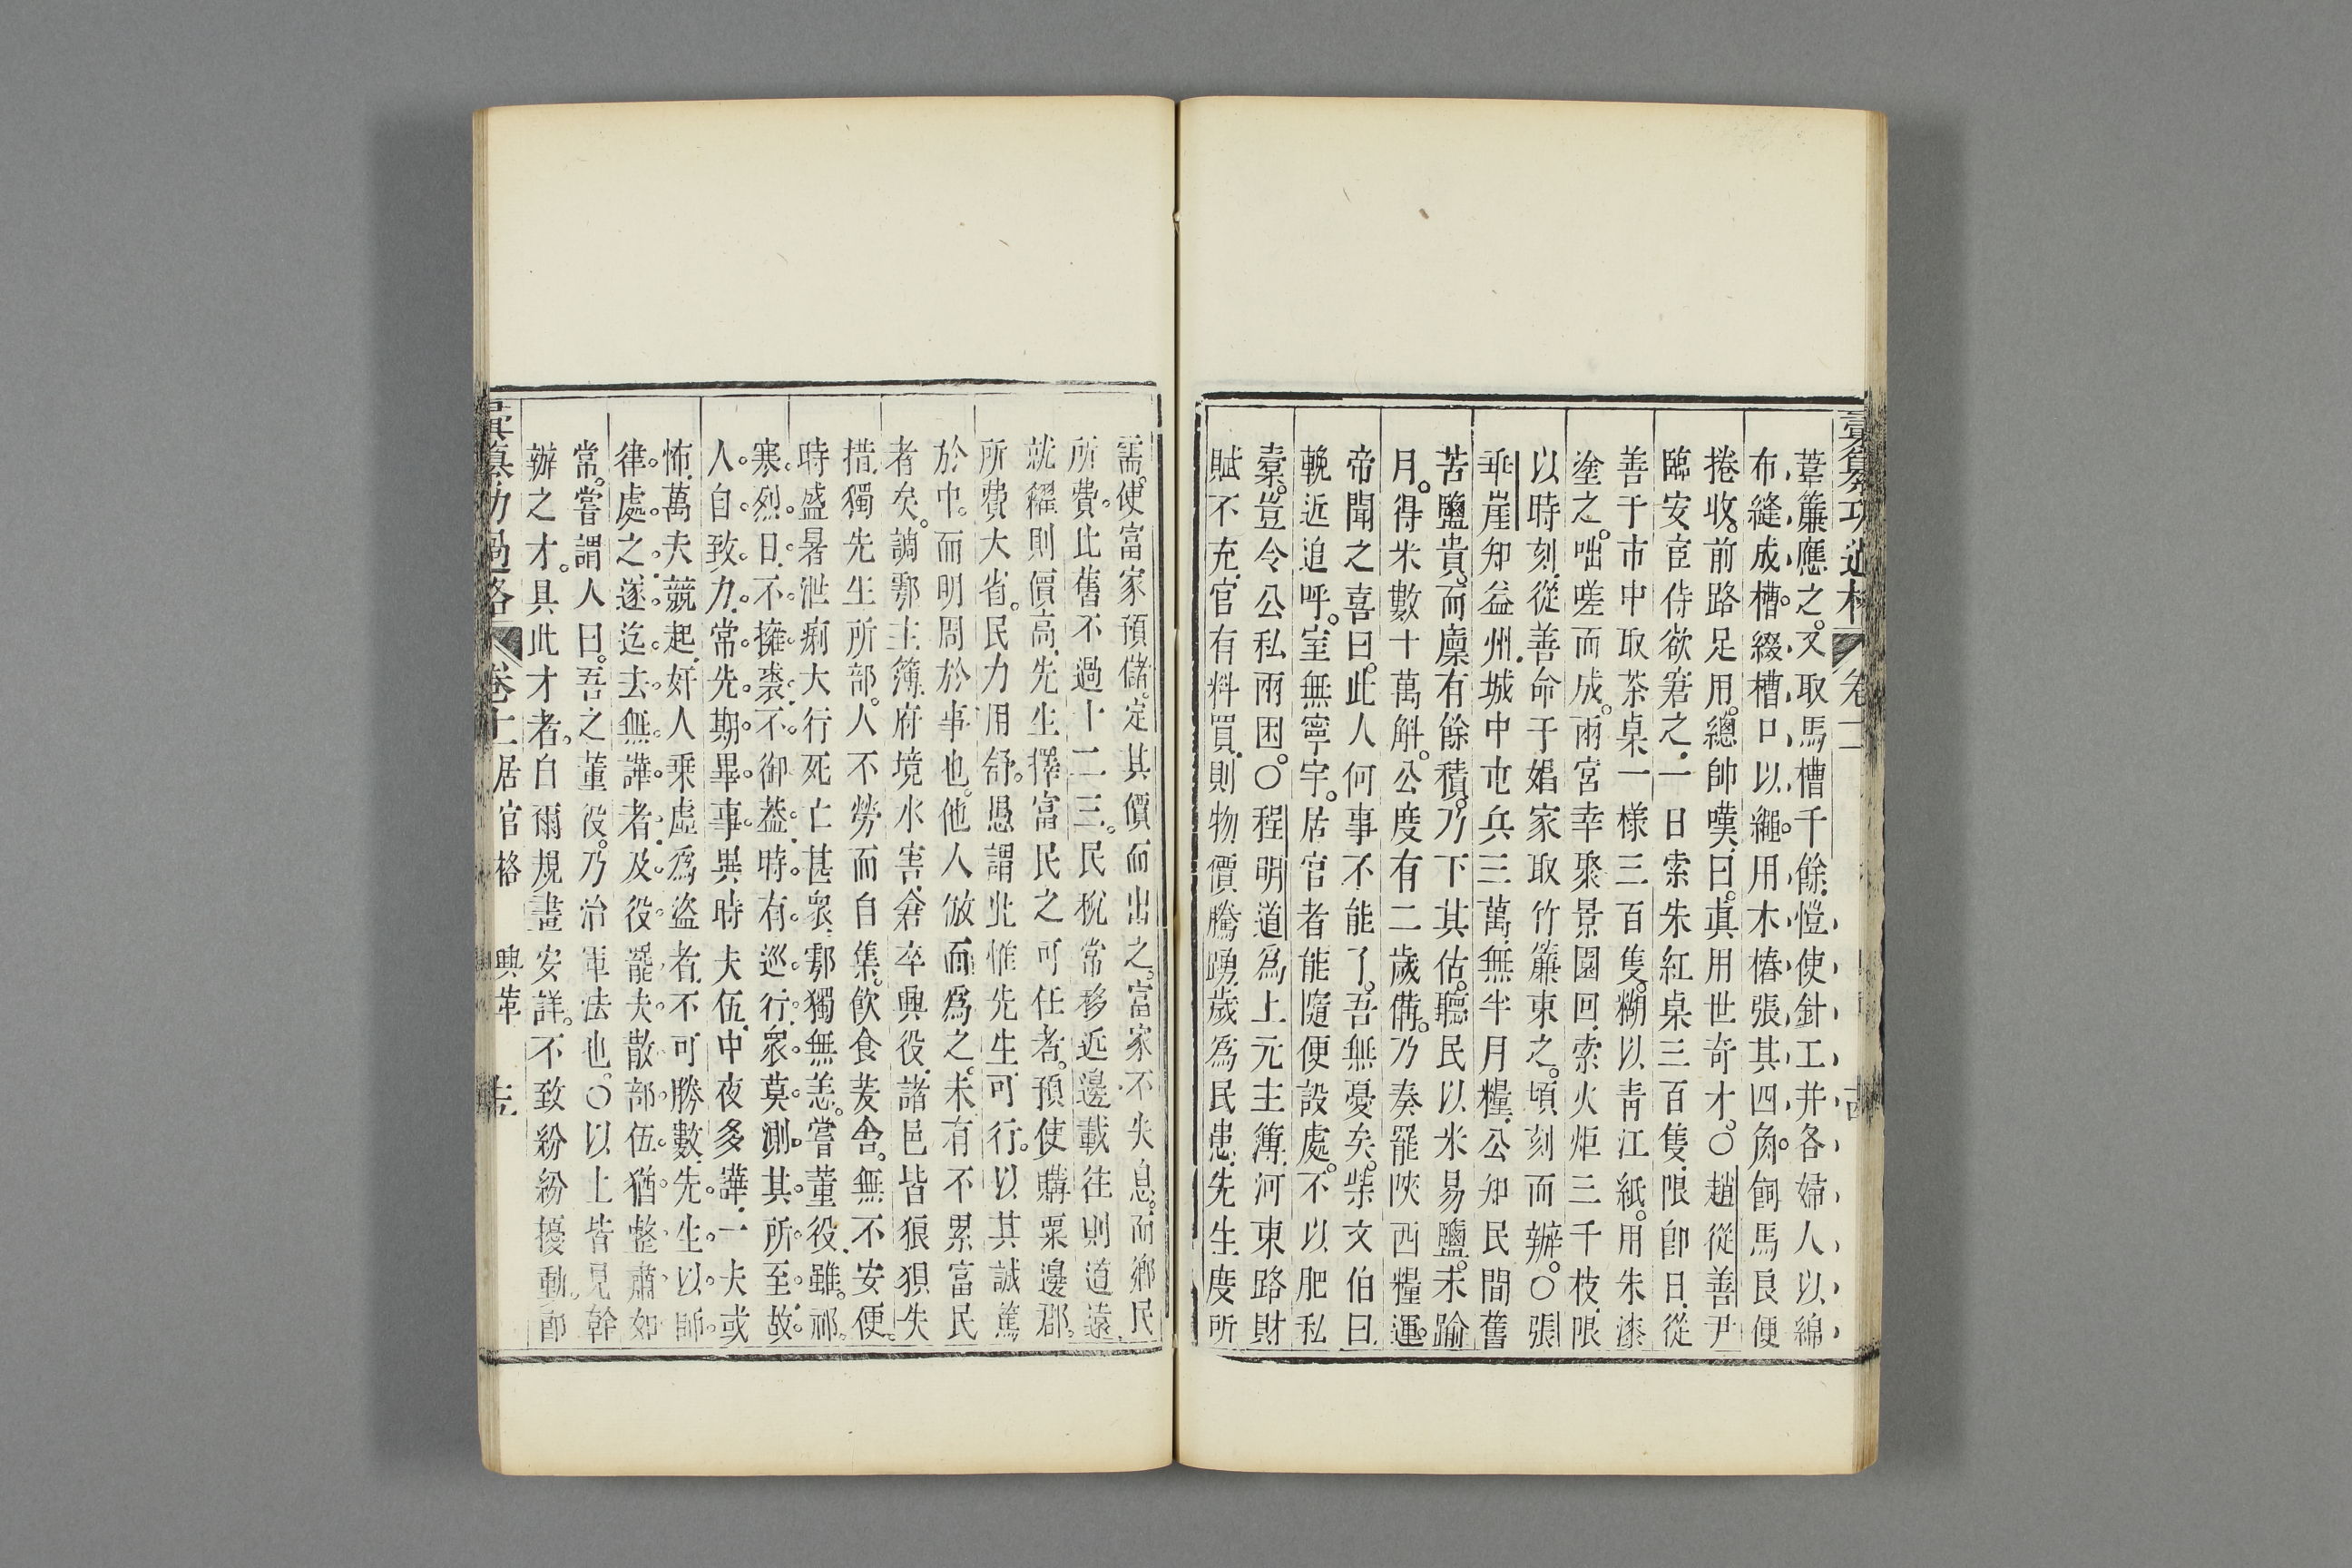 彙纂功過格 卷十二
葦簾應之。又取馬槽千餘。愷使針工并各婦人以綿
布縫成槽。綴槽口以繩。用木樁張其四角。飼馬良便
捲收。前路足用。總帥嘆曰。真用世奇才。○趙從善尹
臨安。宦侍欲窘之。一日索朱紅桌三百隻。限卽日。從
善于市中取茶桌一樣三百隻。糊以青江紙。用朱漆
塗之。咄嗟而成。兩宮幸聚景園回。索火炬三千枝。限
以時刻。從善命于娼家取竹簾束之。頃刻而辦。○張
乖崖知益州。城中屯兵三萬。無半月糧。公知民間舊
苦鹽貴。而廩有餘積。乃下其估。聽民以米易鹽。未踰
月。得米數十萬斛。公度有二歲備。乃奏罷陝西糧運。
帝聞之喜曰。此人何事不能了。吾無憂矣。柴文伯曰。
輓近追呼。室無寧宇。居官者能隨便設處。不以肥私
橐。豈令公私兩困。○程明道爲上元主簿。河東路財
賦不充。官有料買。則物價騰踴。歲爲民患。先生度所
需。使富家預儲。定其價而出之。富家不失息。而鄉民
所費。比舊不過十二三。民稅常移近邊。載往則道遠。
就糴則價高。先生擇富民之可任者。預使購粟邊郡。
所費大省。民力用舒。愚謂此惟先生可行。以其誠篤
於中。而明周於事也。他人倣而爲之。未有不累富民
者矣。調鄠主簿。府境水害。倉卒興役。諸邑皆狼狽失
措。獨先生所部。人不勞而自集。飲食茇舍。無不安便。
時盛暑泄痢大行。死亡甚衆。鄠獨無恙。嘗董役。雖祁
寒烈日。不擁裘。不御蓋。時有巡行。衆莫測其所至。故
人自致力。常先期畢事。異時夫伍。中夜多譁。一夫或
怖。萬夫競起。奸人乘虛爲盜者。不可勝數。先生以師
律處之。遂迄去無譁者。及役罷夫散。部伍猶整肅如
常。嘗謂人曰。吾之董役。乃治軍法也。○以上皆見幹
辦之才。具此才者。自爾規畫安詳。不致紛紛擾動。卽
彙纂功過格 卷十二 居官格 興革